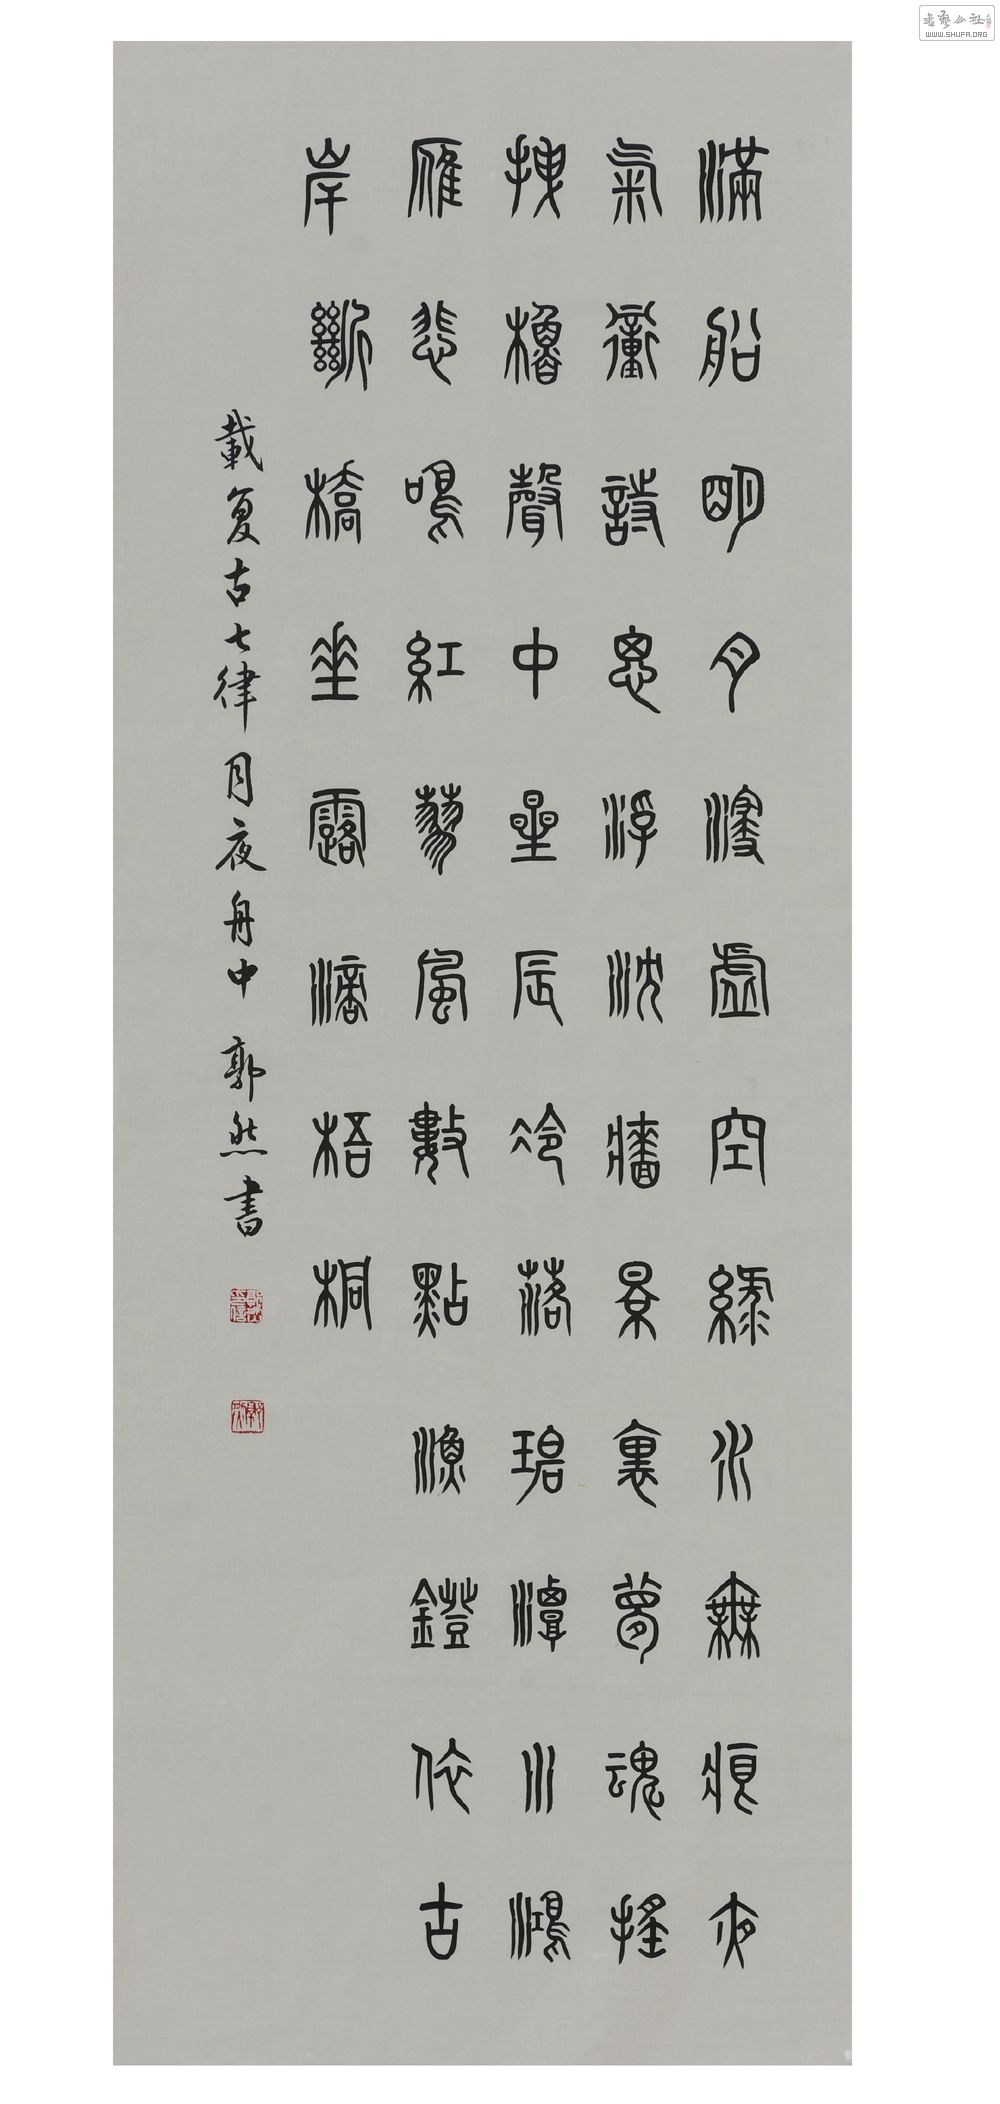 滿船明月浸虛空綠水無痕夜
氣衝詩思浮沈牆景裏夢魂搖
拽櫓聲中星辰冷落碧潭水鴻
雁悲鳴紅蓼風數點漁鐙依古
岸斷橋垂露滴梧桐
載复古七律月夜舟中 郭然書
書藝公社
WWW.SHUFA.ORG